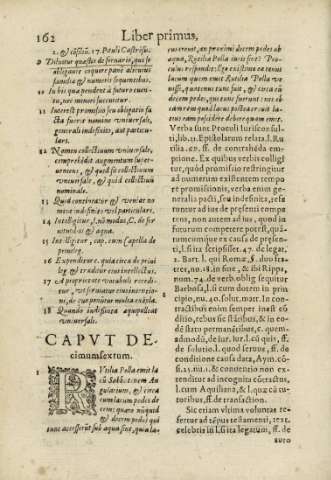 162 Liber primus,
2. & cōsiliū. 17. Pauli Castrēsis.
9 Diluitur quæstio de seruario, qui se
obligauit coquere pane alicuius
familiæ & numeris sequentibus.
10 In his quæ pendent à futuro euen
tu, nec minuit succumbit.
11 Interest promissio seu obligatio fa
cta fuerit nomine vniuersale,
generali indefinito, aut particu-
lari.
12 Nomen collectiuum vniuersale,
comprehēdit augmentum super-
ueniens, & quid si collectiuum
vniuersale, & quid collectiuū
numerale.
13 Quod continetur & veniat no
mine indefinito vel particulari.
14 Intelligitur, l. nō modus, C. de ser
uitutibus & aqua.
15 Intelligitur, cap. cum Capella de
priuileg.
16 Expenditur c. quia circa de priui
leg & traditur eius intellectus.
17 A proprietate vocabuli recedi-
tur, vt seruetur eius intētio-
nis, & cur ponitur multa exēpla.
18 Quando indefinita æquipolleat
vniuersali.
CAPVT DE-
cimumsextum.
1 RVtilia Polla emit la
cū Sabbatenem An
gularium, & circa
eum lacum pedes de
cem: quæro nūquid
& decem pedes qui
tunc accesserūt sub aqua sint, quia la-
cus creuerat, an proximi decem pedes ab
aqua, Rutiliæ Polla iuris sint? Pro-
culus respondit: Ego existimo eatenus
lacum quem emit Rutilia Polla ve
nisse, quatenus tunc fuit, & circa eū
decem pedes, qui tunc fuerunt: nec ob
eam rem quod lacus postea creuit, la-
tius eam possidere debere quam emit.
Verba sunt Proculi Iuriscon sul-
ti, lib. 11. Epistolarum relata l. Ru
tilia. 69. ff. de contrahēda em-
ptione. Ex quibus verbis colligi
tur, quòd promissio restringitur
ad numerum existentem tempo
re promissionis, verba enim ge-
neralia pacti, seu indefinita, refe
runtur ad ius de præsenti compe
tens, non autem ad ius, quod in
futurum competere potest, quā-
tumcumque ex causa de præsen-
ti, l. si ita scripsisset. 47. de legat.
2. Bart. l. qui Romæ, §. duo fra-
tres, nu. 18. in fine, & ibi Rippa,
num. 74. de verb. oblig sequitur
Barbosa, l. si cum dotem in prin-
cipio, nu. 40. solut. matr. In con-
tractibus enim semper inest cō
ditio, rebus sic stātibus, & in eo-
dē statu permanētibus, c. quem-
admodū, de iur. iur. l. cū quis, ff.
de solutio. l. quod seruus, ff. de
conditione causa data, Aym. cō-
si. 25. nu. 1. & conuentio non ex-
tenditur ad incognita cōtractus,
l. cum Aquiliana, & l. quæ cū tu-
toribus, ff. de transaction.
Sic etiam vltima voluntas re-
fertur ad tēpus testamenti, text.
celebris in l. si ita legatum, ff. de
auro